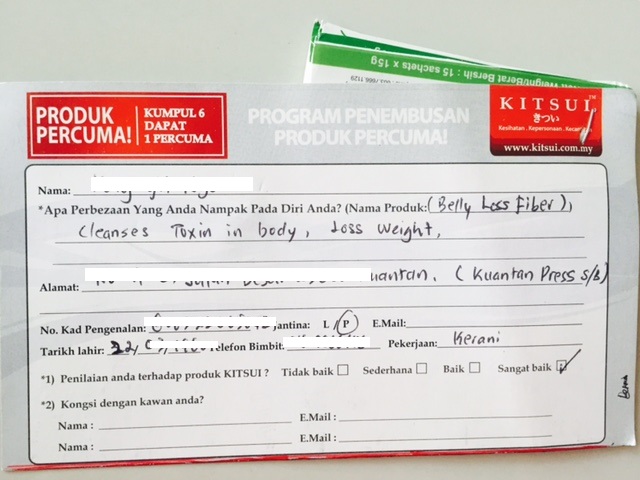 Weight/Berat Bersih : 15 sachets x 15g
PRODUK PERCUMA!
KUMPUL 6 DAPAT 1 PERCUMA
PROGRAM PENEMBUSAN
PRODUK PERCUMA!
KITSUI™
きつい
Kesihatan . Kepersonaan .
www.kitsui.com.my
Nama:
*Apa Perbezaan Yang Anda Nampak Pada Diri Anda? (Nama Produk: (Belly Loss Fiber),
Cleanses Toxin in body, Loss Weight,
Alamat: uantan. (Kuantan Press S/B)
No. Kad Pengenalan: Jantina: L / P E.Mail:
Tarikh lahir: 22, Telefon Bimbit: Pekerjaan: Kerani
*1) Penilaian anda terhadap produk KITSUI ? Tidak baik Sederhana Baik Sangat baik
*2) Kongsi dengan kawan anda?
Nama : E.Mail :
Nama : E.Mail :